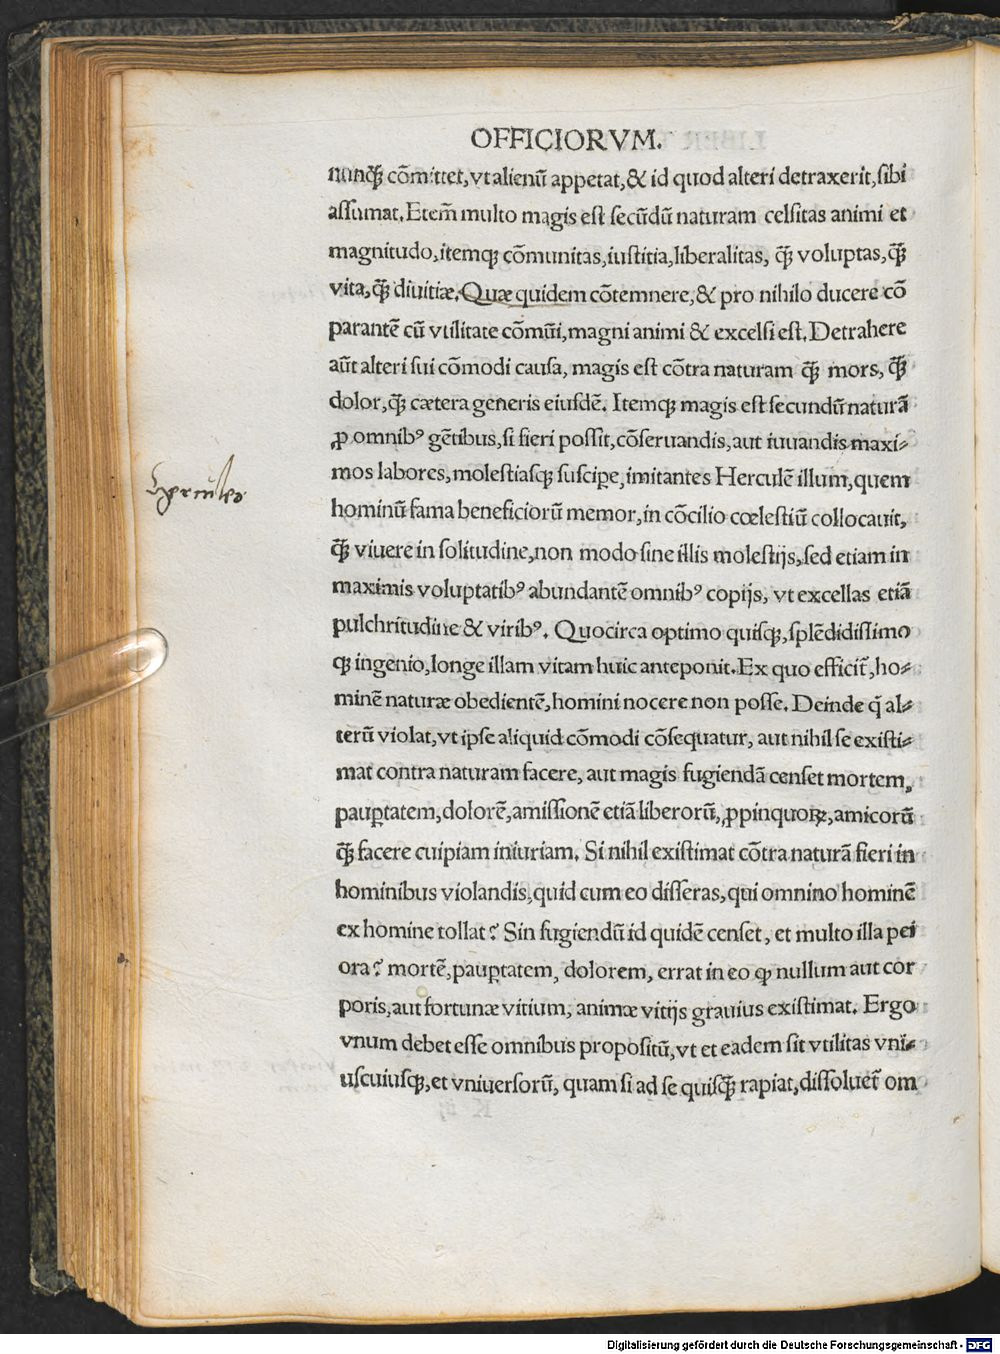 OFFICIORVM.
nunq̃ȝ cõmittet, vt alienũ appetat, & id quod alteri detraxerit, sibi
assumat. Etem̃ multo magis est secũdũ naturam celsitas animi et
magnitudo, itemqȝ cõmunitas, iustitia, liberalitas, q̃ȝ voluptas, q̃ȝ
vita, q̃ȝ diuitiæ. Quæ quidem cõtemnere, & pro nihilo ducere cõ
parantẽ cũ vtilitate cõmũi, magni animi & excelsi est. Detrahere
aũt alteri sui cõmodi causa, magis est cõtra naturam q̃ȝ mors, q̃ȝ
dolor, q̃ȝ cætera generis eiusdẽ. Itemqȝ magis est secundũ naturã
ꝓ omnibꝰ gẽtibus, si fieri possit, cõseruandis, aut iuuandis maxi⸗
mos labores, molestiasqȝ suscipe, imitantes Herculẽ illum, quem
hominũ fama beneficiorũ memor, in cõcilio cœlestiũ collocauit,
q̃ȝ viuere in solitudine, non modo sine illis molestijs, sed etiam in
maximis voluptatibꝰ abundantẽ omnibꝰ copijs, vt excellas etiã
pulchritudine & viribꝰ. Quocirca optimo quisqȝ, splẽdidissimo
qȝ ingenio, longe illam vitam huic anteponit. Ex quo efficit̃, ho⸗
minẽ naturæ obedientẽ, homini nocere non posse. Deinde q̃ al⸗
terũ violat, vt ipse aliquid cõmodi cõsequatur, aut nihil se existi⸗
mat contra naturam facere, aut magis fugiendã censet mortem,
pauꝑtatem, dolorẽ, amissionẽ etiã liberorũ, ꝓpinquoꝝ, amicorũ
q̃ȝ facere cuipiam iniuriam. Si nihil existimat cõtra naturã fieri in
hominibus violandis, quid cum eo disseras, qui omnino hominẽ
ex homine tollat? Sin fugiendũ id quidẽ censet, et multo illa pei
ora? mortẽ, pauꝑtatem, dolorem, errat in eo ꝙ nullum aut cor
poris, aut fortunæ vitium, animæ vitijs grauius existimat. Ergo
vnum debet esse omnibus propositũ, vt et eadem sit vtilitas vni⸗
uscuiusqȝ, et vniuersorũ, quam si ad se quisq̃ȝ rapiat, dissoluet̃ om
Hercules
Digitalisierung gefördert durch die Deutsche Forschungsgemeinschaft - DFG